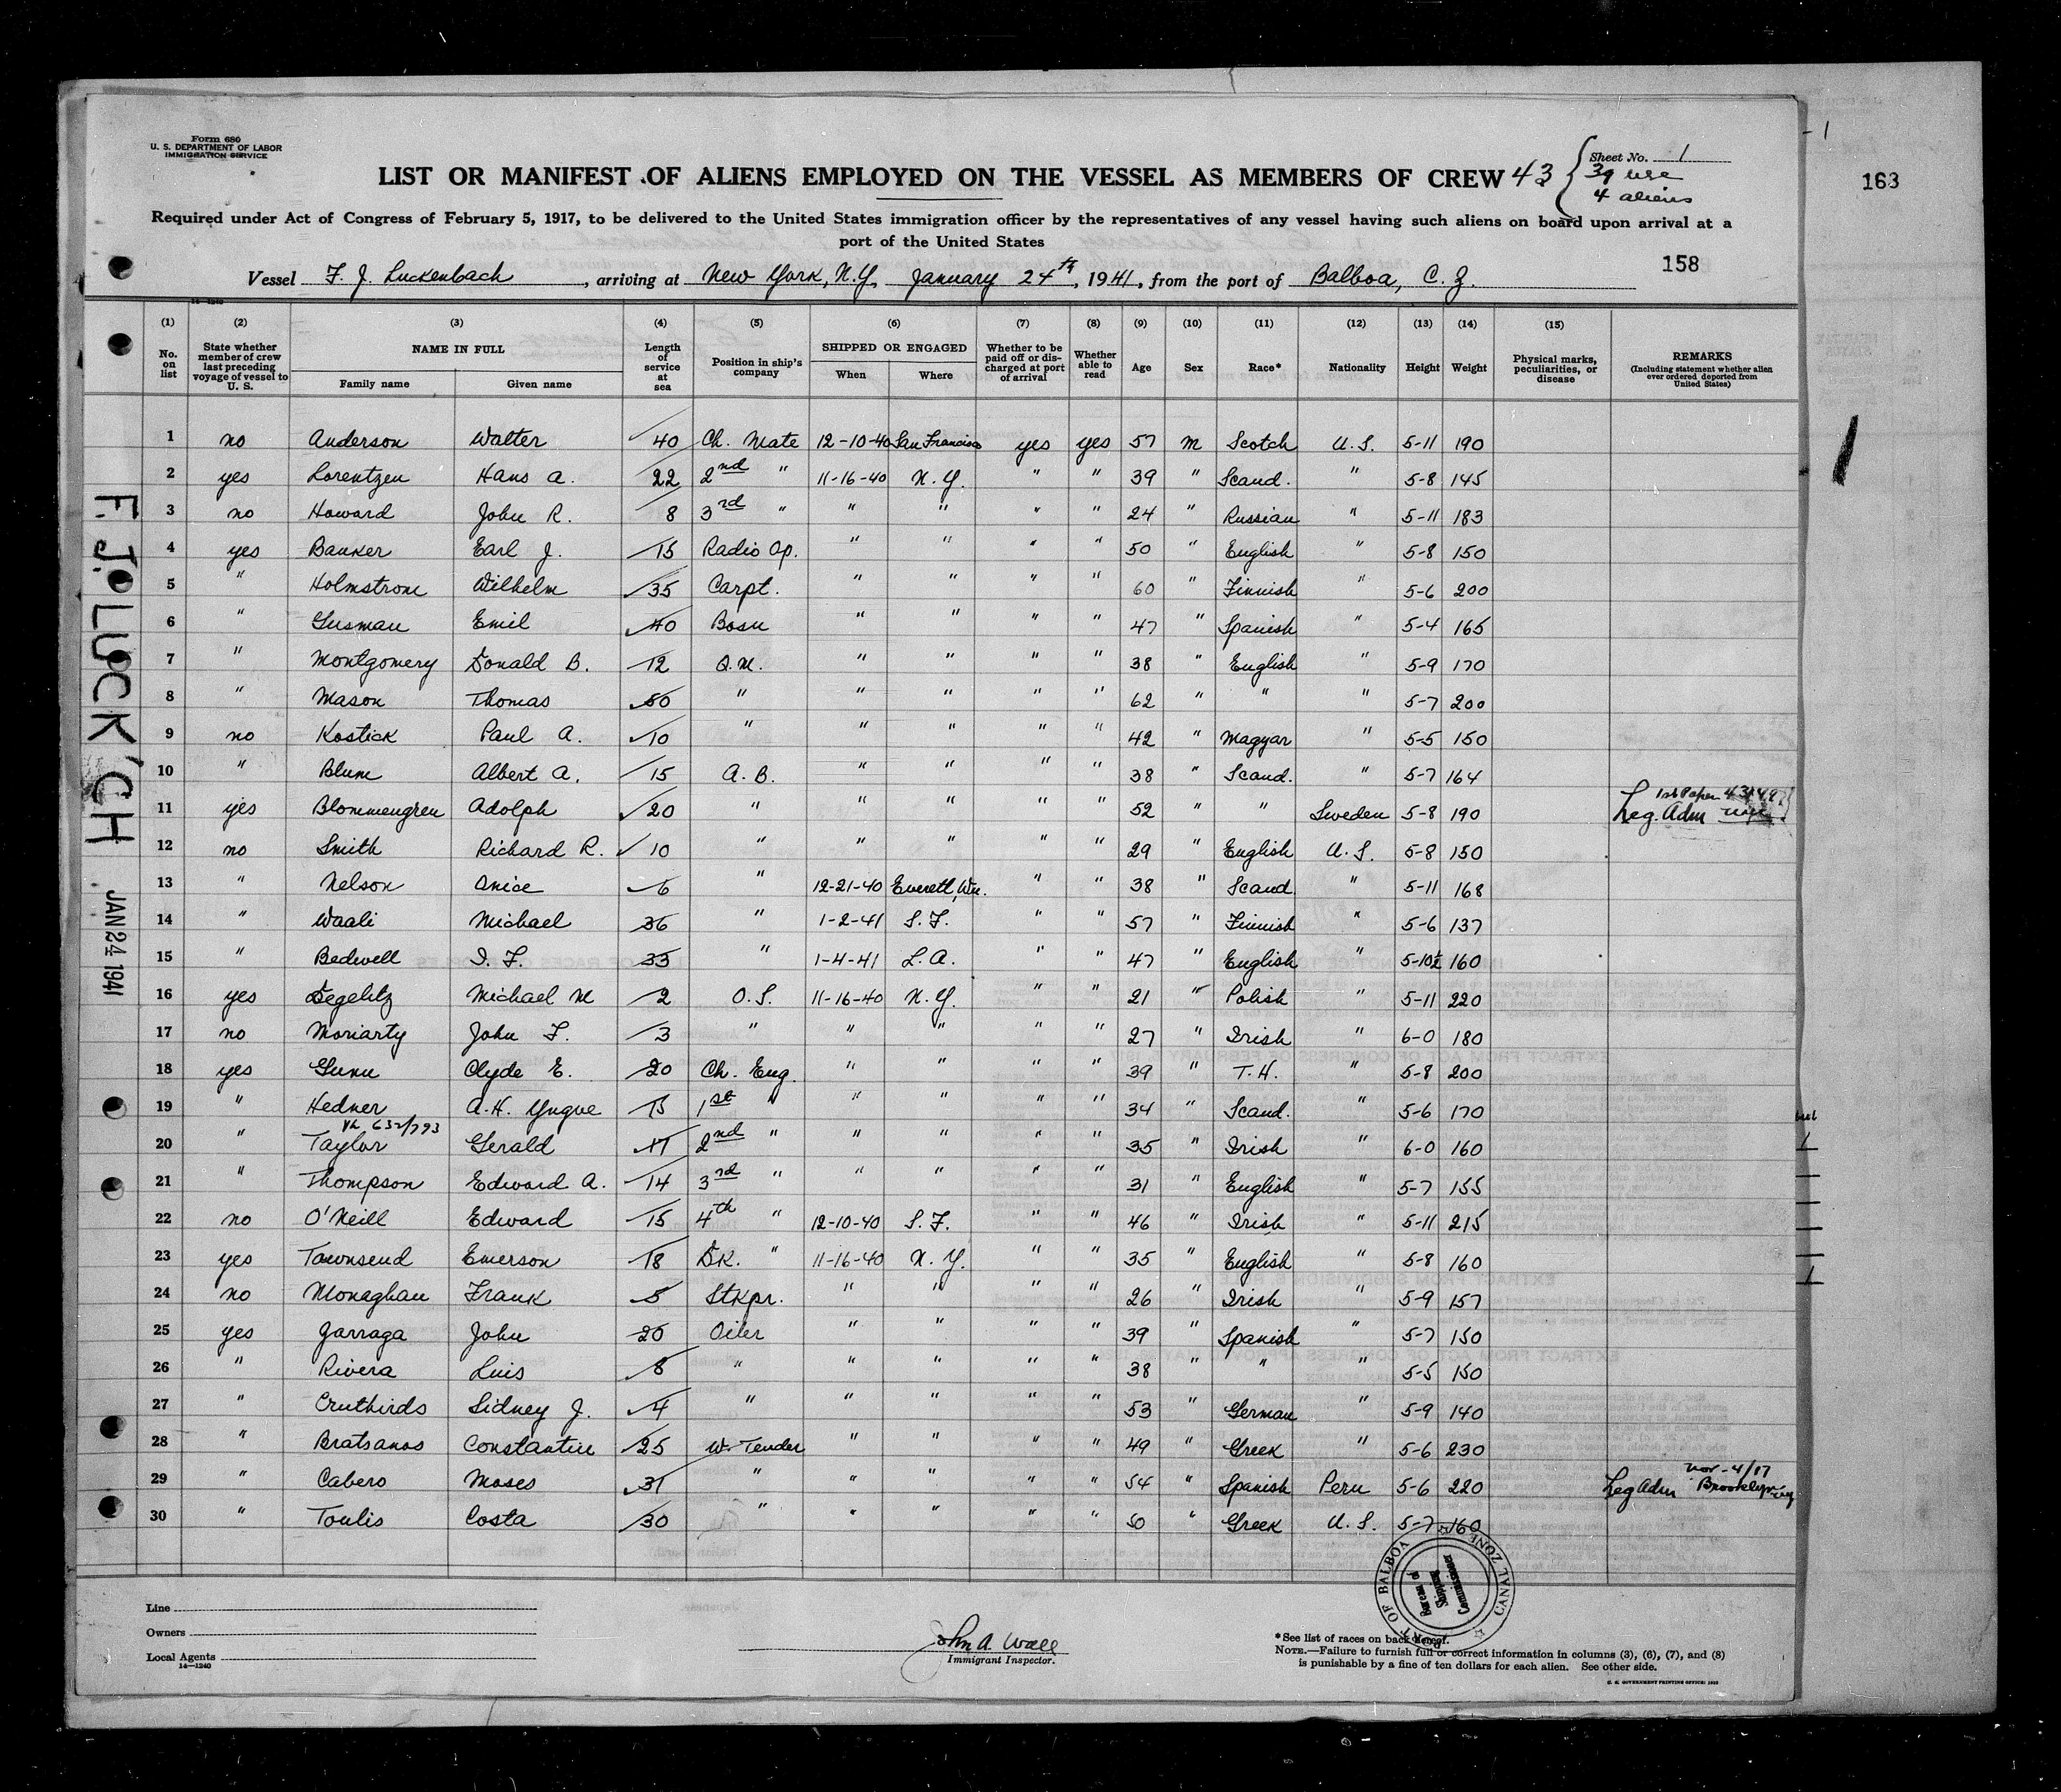 Form 680
U. S. DEPARTMENT OF LABOR
IMMIGRATION SERVICE
LIST OR MANIFEST OF ALIENS EMPLOYED ON THE VESSEL AS MEMBERS OF CREW 43
Sheet No. 1
39 use
4 aliens
163
Required under Act of Congress of February 5, 1917, to be delivered to the United States immigration officer by the representatives of any vessel having such aliens on board upon arrival at a
port of the United States
158
Vessel F. J. Luckenbach, arriving at New York, N.Y., January 24th, 1941, from the port of Balboa, C. Z.
(1) (2) (3) (4) (5) (6) (7) (8) (9) (10) (11) (12) (13) (14) (15)
No. on list
State whether member of crew last preceding voyage of vessel to U. S.
NAME IN FULL
Family name
Given name
Length of service at sea
Position in ship's company
SHIPPED OR ENGAGED
When
Where
Whether to be paid off or discharged at port of arrival
Whether able to read
Age
Sex
Race*
Nationality
Height
Weight
Physical marks, peculiarities, or disease
REMARKS
(Including statement whether alien ever ordered deported from United States)
1 no Anderson Walter 40 Ch. Mate 12-10-40 San Francisco yes yes 57 m Scotch U.S. 5-11 190
2 yes Lorentzen Hans A. 22 2nd " 11-16-40 N.Y. " " 39 " Scand. " 5-8 145
3 no Howard John R. 8 3rd " " " " " 24 " Russian " 5-11 183
4 yes Banker Earl J. 15 Radio Op. " " " " 50 " English " 5-8 150
5 " Holmstrom Wilhelm 35 Carpt. " " " " 60 " Finnish " 5-6 200
6 " Gusman Emil 40 Bosn " " " " 47 " Spanish " 5-4 165
7 " Montgomery Donald B. 12 Q.M. " " " " 38 " English " 5-9 170
8 " Mason Thomas 50 " " " " " 62 " " " 5-7 200
9 no Kostick Paul A. 10 " " " " " 42 " Magyar " 5-5 150
10 " Blum Albert A. 15 A.B. " " " " 38 " Scand. " 5-7 164
11 yes Blommengren Adolph 20 " " " " " 52 " " Sweden 5-8 190 1st Paper Leg. Adm
12 no Smith Richard R. 10 " " " " " 29 " English U.S. 5-8 150
13 " Nelson Anice 6 " 12-21-40 Everett, Wn. " " 38 " Scand. " 5-11 168
14 " Waali Michael 36 " 1-2-41 S.F. " " 57 " Finnish " 5-6 137
15 " Bedwell I. F. 33 " 1-4-41 L.A. " " 47 " English " 5-10½ 160
16 yes Degelitz Michael M 2 O.S. 11-16-40 N.Y. " " 21 " Polish " 5-11 220
17 no Moriarty John F. 3 " " " " " 27 " Irish " 6-0 180
18 yes Gunn Clyde E. 20 Ch. Eng. " " " " 39 " T.H. " 5-8 200
19 " Hedner A.H. Yngve 15 1st " " " " " 34 " Scand. " 5-6 170
632/793
20 " Taylor Gerald 17 2nd " " " " " 35 " Irish " 6-0 160
21 " Thompson Edward A. 14 3rd " " " " " 31 " English " 5-7 155
22 no O'Neill Edward 15 4th " 12-10-40 S.F. " " 46 " Irish " 5-11 215
23 yes Townsend Emerson 18 DK. " 11-16-40 N.Y. " " 35 " English " 5-8 160
24 no Monaghan Frank 5 Stkpr. " " " " 26 " Irish " 5-9 157
25 yes Garraga John 20 Oiler " " " " 39 " Spanish " 5-7 150
26 " Rivera Luis 8 " " " " " 38 " " " 5-5 150
27 " Cruthirds Sidney J. 4 " " " " " 53 " German " 5-9 140
28 " Bratsanos Constantin 25 W. Tender " " " " 49 " Greek " 5-6 230
29 " Cabero Moses 31 " " " " " 54 " Spanish Peru 5-6 220 Leg Adm Nov-4/17 Brooklyn
30 " Toulis Costa 30 " " " " " 50 " Greek U.S. 5-7 160
F. J. LUCK'CH
JAN 24 1941
PORT OF BALBOA CANAL ZONE
Bureau of Shipping Commissioner
Line
Owners
Local Agents
14—1240
John A. Wall
Immigrant Inspector.
*See list of races on back hereof.
NOTE.—Failure to furnish full or correct information in columns (3), (6), (7), and (8)
is punishable by a fine of ten dollars for each alien. See other side.
U. S. GOVERNMENT PRINTING OFFICE